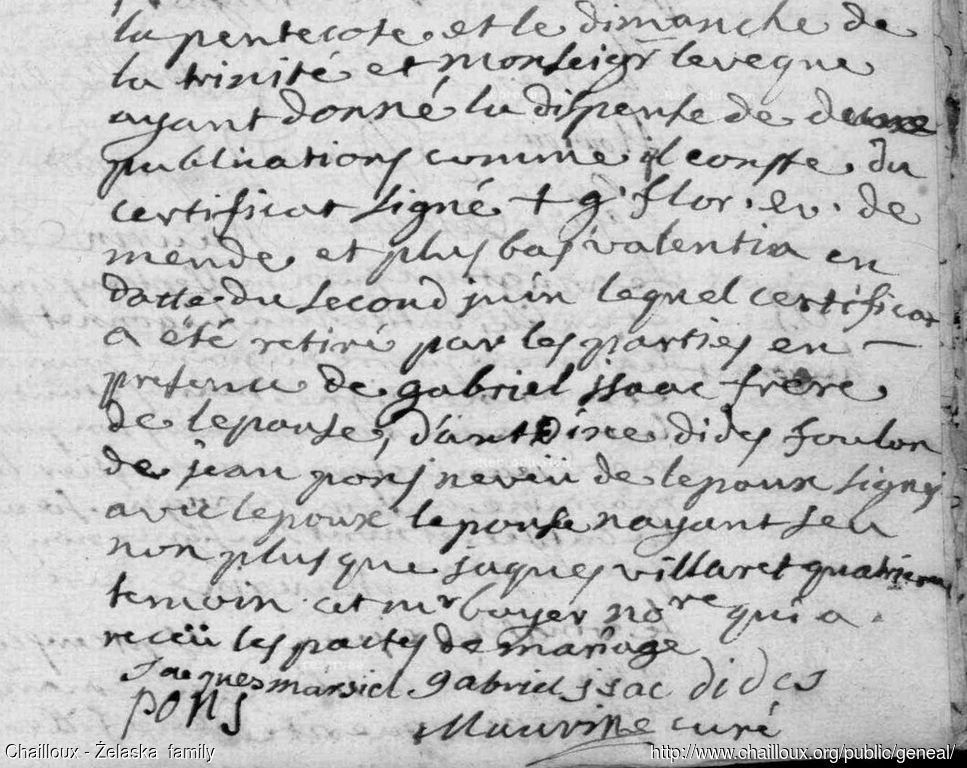 la pentecote et le dimanche de
la trinité et monseigr leveque
ayant donné la dispense de deux
publications comme il conste du
certificat signé + g. flor. ev. de
mende et plus bas valentin en
datte du second juin lequel certificat
a été retiré par les parties en
presence de gabriel issac frere
de lepouse, d'antoine dides foulon
de jean pons neveü de lepoux signes
avec lepoux lepouse nayant seu
non plus que jaques villaret quatrieme
temoin et mr boyer nore qui a
receü les pactes de mariage
Jacques marsiel gabriel issac dides
pons
curé
Chailloux - Želaska family
http://www.chailloux.org/public/geneal/